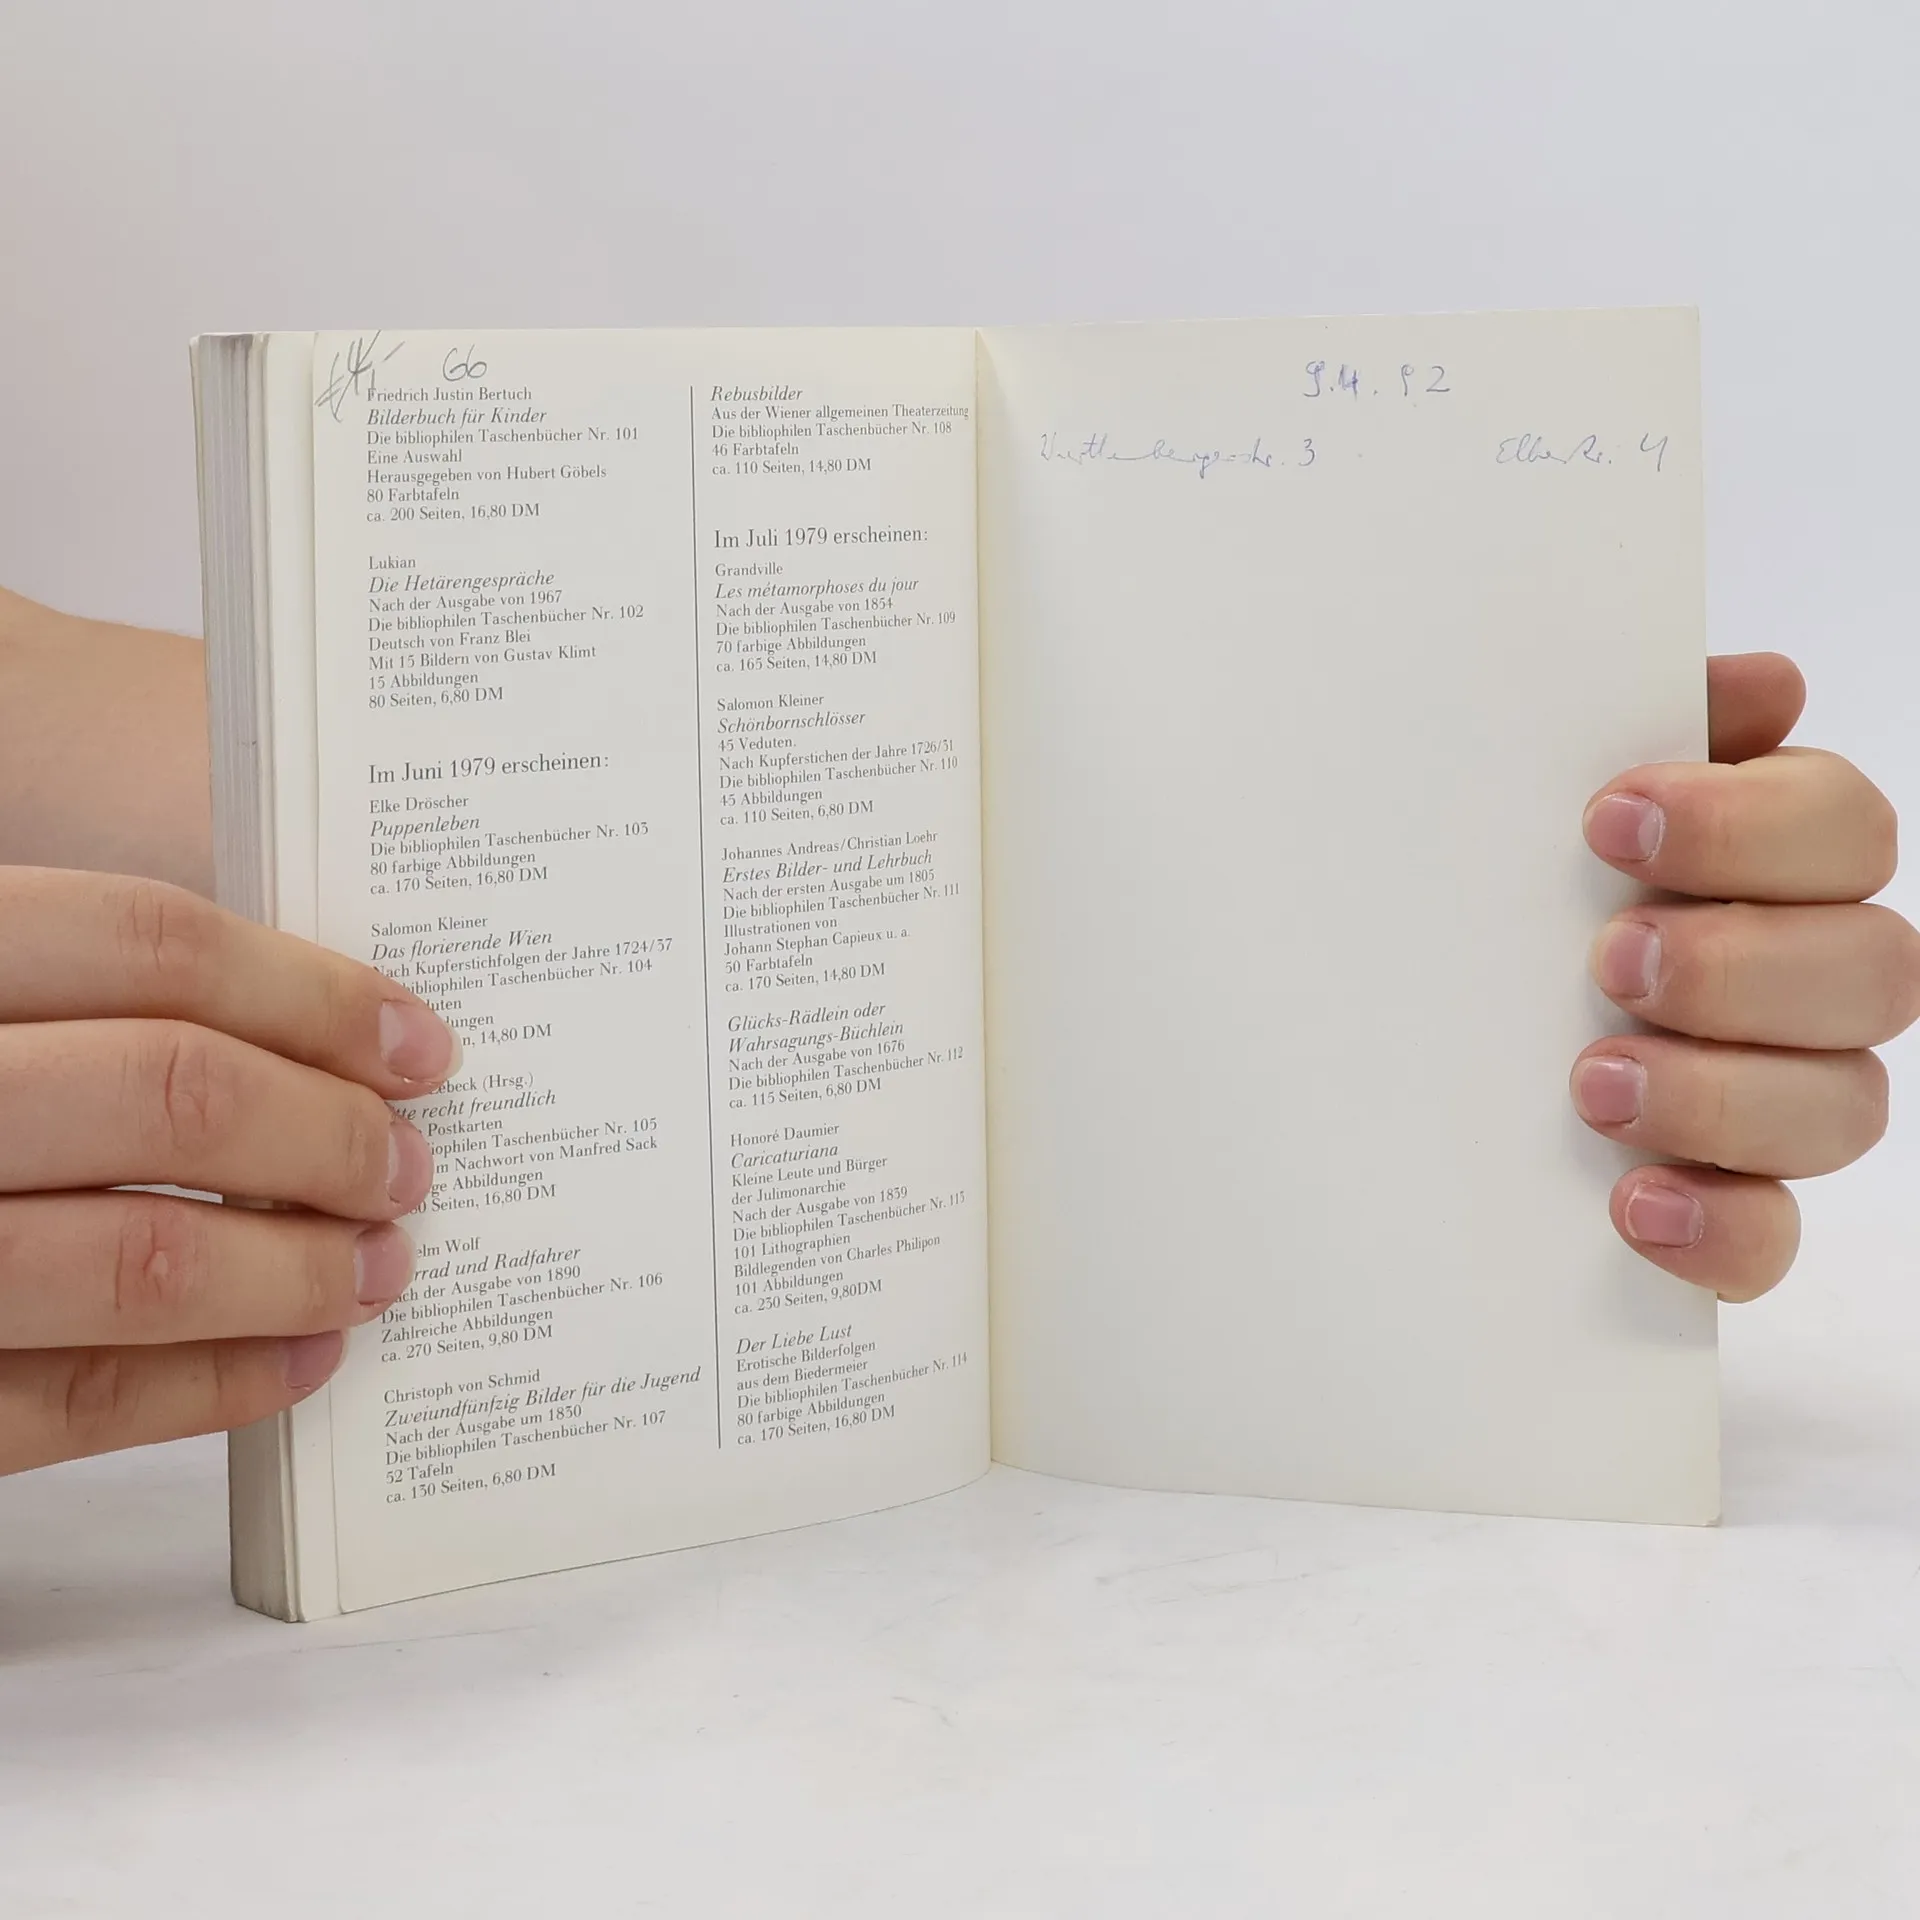 66
Friedrich Justin Bertuch
Bilderbuch für Kinder
Die bibliophilen Taschenbücher Nr. 101
Eine Auswahl
Herausgegeben von Hubert Göbels
80 Farbtafeln
ca. 200 Seiten, 16,80 DM
Lukian
Die Hetärengespräche
Nach der Ausgabe von 1967
Die bibliophilen Taschenbücher Nr. 102
Deutsch von Franz Blei
Mit 15 Bildern von Gustav Klimt
15 Abbildungen
80 Seiten, 6,80 DM
Im Juni 1979 erscheinen:
Elke Dröscher
Puppenleben
Die bibliophilen Taschenbücher Nr. 103
80 farbige Abbildungen
ca. 170 Seiten, 16,80 DM
Salomon Kleiner
Das florierende Wien
Nach Kupferstichfolgen der Jahre 1724/37
bibliophilen Taschenbücher Nr. 104
14,80 DM
(Hrsg.)
recht freundlich
Postkarten
Taschenbücher Nr. 105
Nachwort von Manfred Sack
Abbildungen
Seiten, 16,80 DM
Wolf
und Radfahrer
der Ausgabe von 1890
Die bibliophilen Taschenbücher Nr. 106
Zahlreiche Abbildungen
ca. 270 Seiten, 9,80 DM
Christoph von Schmid
Zweiundfünfzig Bilder für die Jugend
Nach der Ausgabe um 1830
Die bibliophilen Taschenbücher Nr. 107
52 Tafeln
ca. 130 Seiten, 6,80 DM
Rebusbilder
Aus der Wiener allgemeinen Theaterzeitung
Die bibliophilen Taschenbücher Nr. 108
46 Farbtafeln
ca. 110 Seiten, 14,80 DM
Im Juli 1979 erscheinen:
Grandville
Les métamorphoses du jour
Nach der Ausgabe von 1854
Die bibliophilen Taschenbücher Nr. 109
70 farbige Abbildungen
ca. 165 Seiten, 14,80 DM
Salomon Kleiner
Schönbornschlösser
45 Veduten.
Nach Kupferstichen der Jahre 1726/31
Die bibliophilen Taschenbücher Nr. 110
45 Abbildungen
ca. 110 Seiten, 6,80 DM
Johannes Andreas/Christian Loehr
Erstes Bilder- und Lehrbuch
Nach der ersten Ausgabe um 1805
Die bibliophilen Taschenbücher Nr. 111
Illustrationen von
Johann Stephan Capieux u. a.
50 Farbtafeln
ca. 170 Seiten, 14,80 DM
Glücks-Rädlein oder
Wahrsagungs-Büchlein
Nach der Ausgabe von 1676
Die bibliophilen Taschenbücher Nr. 112
ca. 115 Seiten, 6,80 DM
Honoré Daumier
Caricaturiana
Kleine Leute und Bürger
der Julimonarchie
Nach der Ausgabe von 1839
Die bibliophilen Taschenbücher Nr. 113
101 Lithographien
Bildlegenden von Charles Philipon
101 Abbildungen
ca. 230 Seiten, 9,80DM
Der Liebe Lust
Erotische Bilderfolgen
aus dem Biedermeier
Die bibliophilen Taschenbücher Nr. 114
80 farbige Abbildungen
ca. 170 Seiten, 16,80 DM
9.4.92
3
4